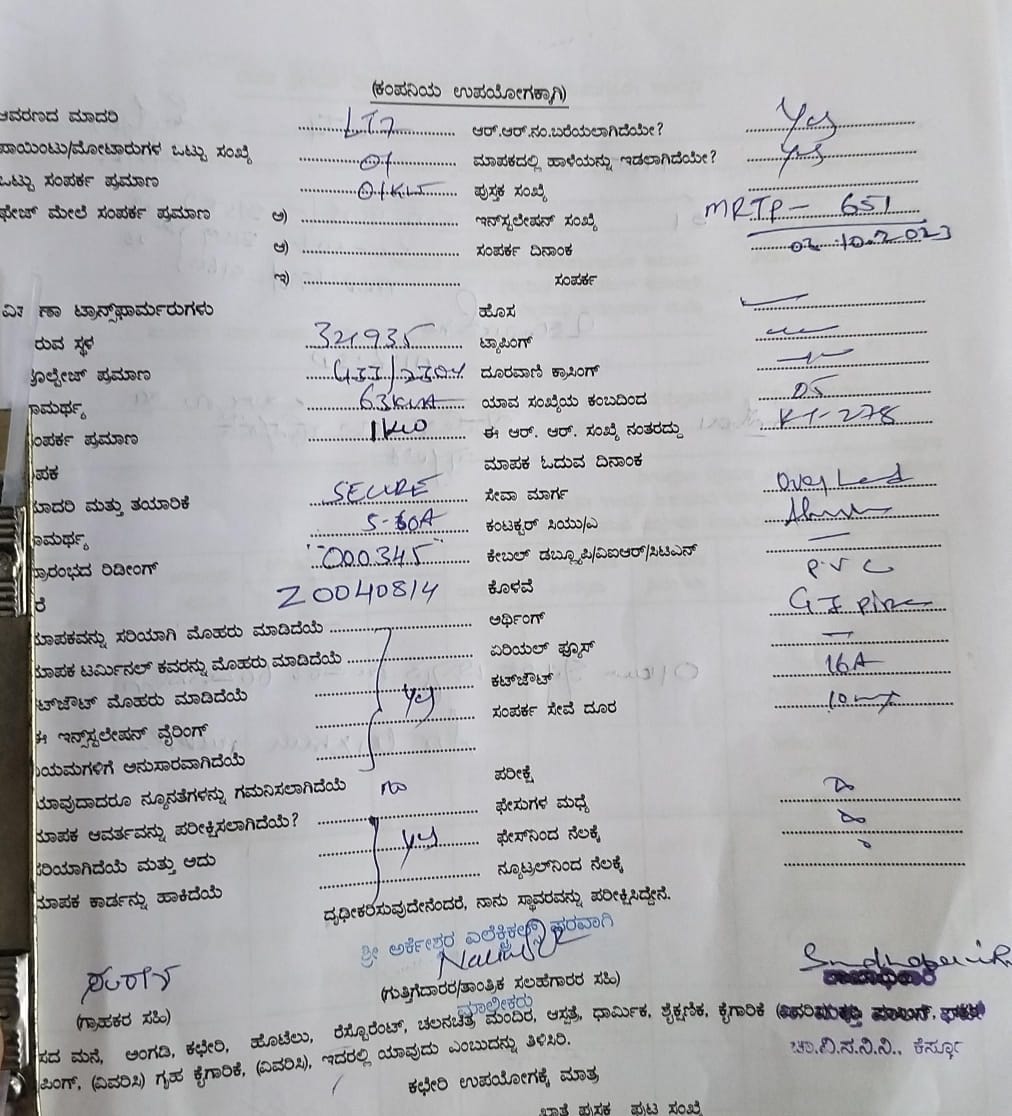 (ಕಂಪನಿಯ ಉಪಯೋಗಕ್ಕಾಗಿ)
ಆವರಣದ ಮಾದರಿ LT7 ಆರ್.ಆರ್.ನಂ.ಬರೆಯಲಾಗಿದೆಯೇ? Yes
ಪಾಯಿಂಟು/ಮೋಟಾರುಗಳ ಒಟ್ಟು ಸಂಖ್ಯೆ 01 ಮಾಪಕದಲ್ಲಿ ಹಾಳೆಯನ್ನು ಇಡಲಾಗಿದೆಯೇ? yes
ಒಟ್ಟು ಸಂಪರ್ಕ ಪ್ರಮಾಣ 01KW ಪುಸ್ತಕ ಸಂಖ್ಯೆ
ಫೇಜ್ ಮೇಲೆ ಸಂಪರ್ಕ ಪ್ರಮಾಣ ಅ) ಇನ್‌ಸ್ಟಲೇಷನ್ ಸಂಖ್ಯೆ MRTP- 651
ಆ) ಸಂಪರ್ಕ ದಿನಾಂಕ 03.10.2023
ಇ) ಸಂಪರ್ಕ
ಟ್ರಾನ್ಸ್‌ಫಾರ್ಮರುಗಳು ಹೊಸ
ರುವ ಸ್ಥಳ 321935 ಟ್ಯಾಪಿಂಗ್
ವೋಲ್ಟೇಜ್ ಪ್ರಮಾಣ ದೂರವಾಣಿ ಕ್ರಾಸಿಂಗ್
ಾಮರ್ಥ್ಯ 63KVA ಯಾವ ಸಂಖ್ಯೆಯ ಕಂಬದಿಂದ 05
ಸಂಪರ್ಕ ಪ್ರಮಾಣ 1KW ಈ ಆರ್. ಆರ್. ಸಂಖ್ಯೆ ನಂತರದ್ದು KT-278
ಪಕ ಮಾಪಕ ಓದುವ ದಿನಾಂಕ
ಮಾದರಿ ಮತ್ತು ತಯಾರಿಕೆ SECURE ಸೇವಾ ಮಾರ್ಗ
ಾಮರ್ಥ್ಯ 5-60A ಕಂಟಕ್ಟರ್ ಸಿಯು/ಎ
ಪ್ರಾರಂಭದ ರಿಡೀಂಗ್ 000345 ಕೇಬಲ್ ಡಬ್ಲ್ಯೂಪಿ/ವಿಐಆರ್/ಸಿಟಿಎಸ್
ರೆ Z0040814 ಕೊಳವೆ P.V.C
ಮಾಪಕವನ್ನು ಸರಿಯಾಗಿ ಮೊಹರು ಮಾಡಿದೆಯೆ ಅರ್ಥಿಂಗ್ GI pipe
ಮಾಪಕ ಟರ್ಮಿನಲ್ ಕವರನ್ನು ಮೊಹರು ಮಾಡಿದೆಯೆ ಏರಿಯಲ್ ಫ್ಯೂಸ್
ಟ್‌ಔಟ್ ಮೊಹರು ಮಾಡಿದೆಯೆ yes ಕಟ್‌ಔಟ್ 16A
ಈ ಇನ್‌ಸ್ಟಲೇಷನ್ ವೈರಿಂಗ್ ಸಂಪರ್ಕ ಸೇವೆ ದೂರ
ಿಯಮಗಳಿಗೆ ಅನುಸಾರವಾಗಿದೆಯೆ
ಯಾವುದಾದರೂ ನ್ಯೂನತೆಗಳನ್ನು ಗಮನಿಸಲಾಗಿದೆಯೆ no ಪರೀಕ್ಷೆ
ಮಾಪಕ ಆವರ್ತವನ್ನು ಪರೀಕ್ಷಿಸಲಾಗಿದೆಯೆ? ಫೇಸುಗಳ ಮಧ್ಯೆ
ಸರಿಯಾಗಿದೆಯೆ ಮತ್ತು ಅದು yes ಫೇಸ್‌ನಿಂದ ನೆಲಕ್ಕೆ
ಮಾಪಕ ಕಾರ್ಡನ್ನು ಹಾಕಿದೆಯೆ ನ್ಯೂಟ್ರಲ್‌ನಿಂದ ನೆಲಕ್ಕೆ
ದೃಢೀಕರಿಸುವುದೇನೆಂದರೆ, ನಾನು ಸ್ಥಾವರವನ್ನು ಪರೀಕ್ಷಿಸಿದ್ದೇನೆ.
ಶ್ರೀ ಅರ್ಕೇಶ್ವರ ಎಲೆಕ್ಟ್ರಿಕಲ್ಸ್ ಪರವಾಗಿ
(ಗುತ್ತಿಗೆದಾರರ/ತಾಂತ್ರಿಕ ಸಲಹೆಗಾರರ ಸಹಿ)
(ಗ್ರಾಹಕರ ಸಹಿ) ಮಾಲೀಕರು
ಸದ ಮನೆ, ಅಂಗಡಿ, ಕಛೇರಿ, ಹೊಟೇಲು, ರೆಸ್ಟೊರೆಂಟ್, ಚಲನಚಿತ್ರ ಮಂದಿರ, ಆಸ್ಪತ್ರೆ, ಧಾರ್ಮಿಕ, ಶೈಕ್ಷಣಿಕ, ಕೈಗಾರಿಕೆ
ಪಿಂಗ್, (ವಿವರಿಸಿ) ಗೃಹ ಕೈಗಾರಿಕೆ, (ವಿವರಿಸಿ), ಇದರಲ್ಲಿ ಯಾವುದು ಎಂಬುದನ್ನು ತಿಳಿಸಿರಿ. ಚಾ.ವಿ.ಸ.ನಿ.ನಿ., ಕೆಸ್ತೂರ್
ಕಛೇರಿ ಉಪಯೋಗಕ್ಕೆ ಮಾತ್ರ
ಖಾತೆ ಪುಸ್ತಕ ಪುಟ ಸಂಖ್ಯೆ